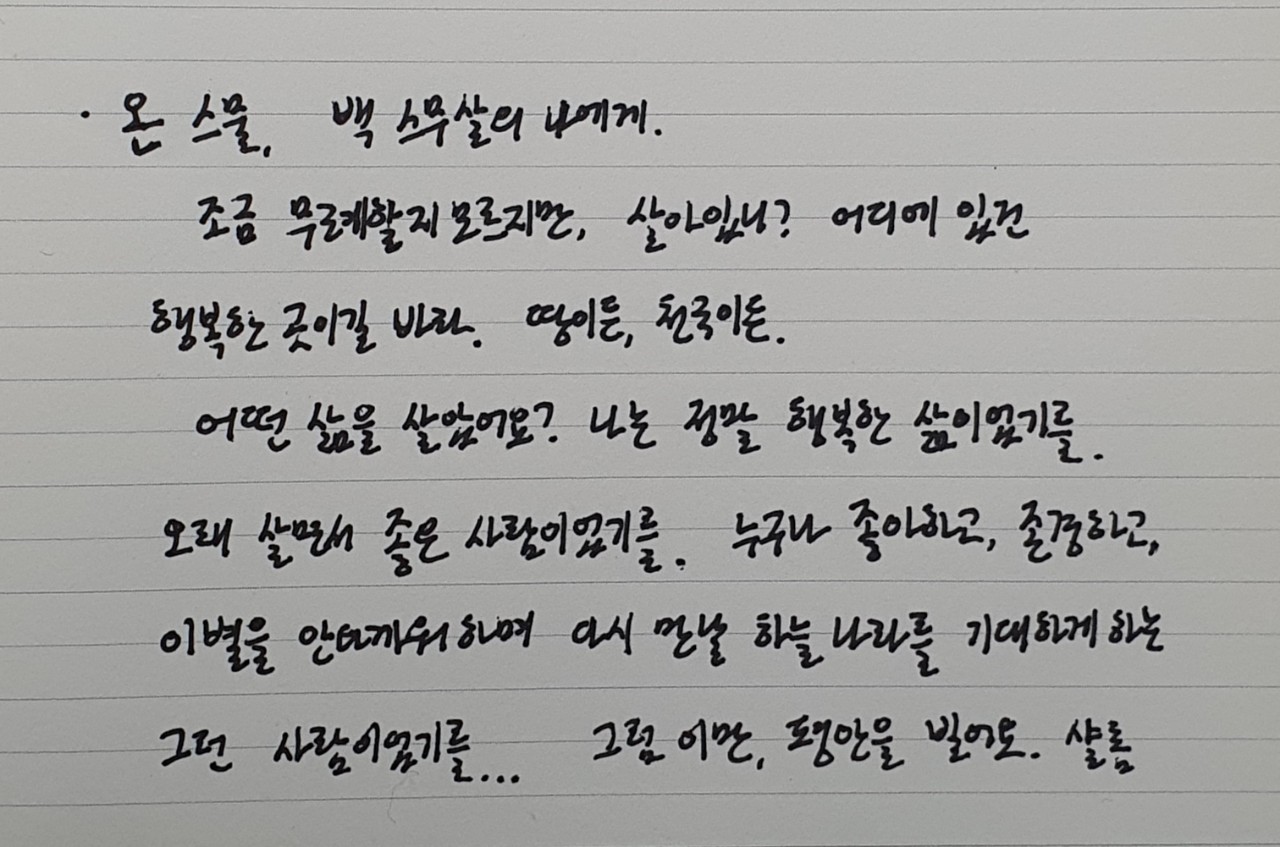 · 온 스물, 백 스무살의 나에게.
조금 무르케할지 모르지만, 살아있니? 어디에 있건
행복한 곳이길 바라. 땅이든, 천국이든.
어떤 삶을 살았어요? 나는 정말 행복한 삶이었기를.
오래 살면서 좋은 사람이었기를. 누구나 좋아하고, 존경하고,
이별을 안타까워하며 다시 만날 하늘나라를 기대하게 하는
그런 사람이었기를... 그럼 이만, 평안을 빌어요. 샬롬